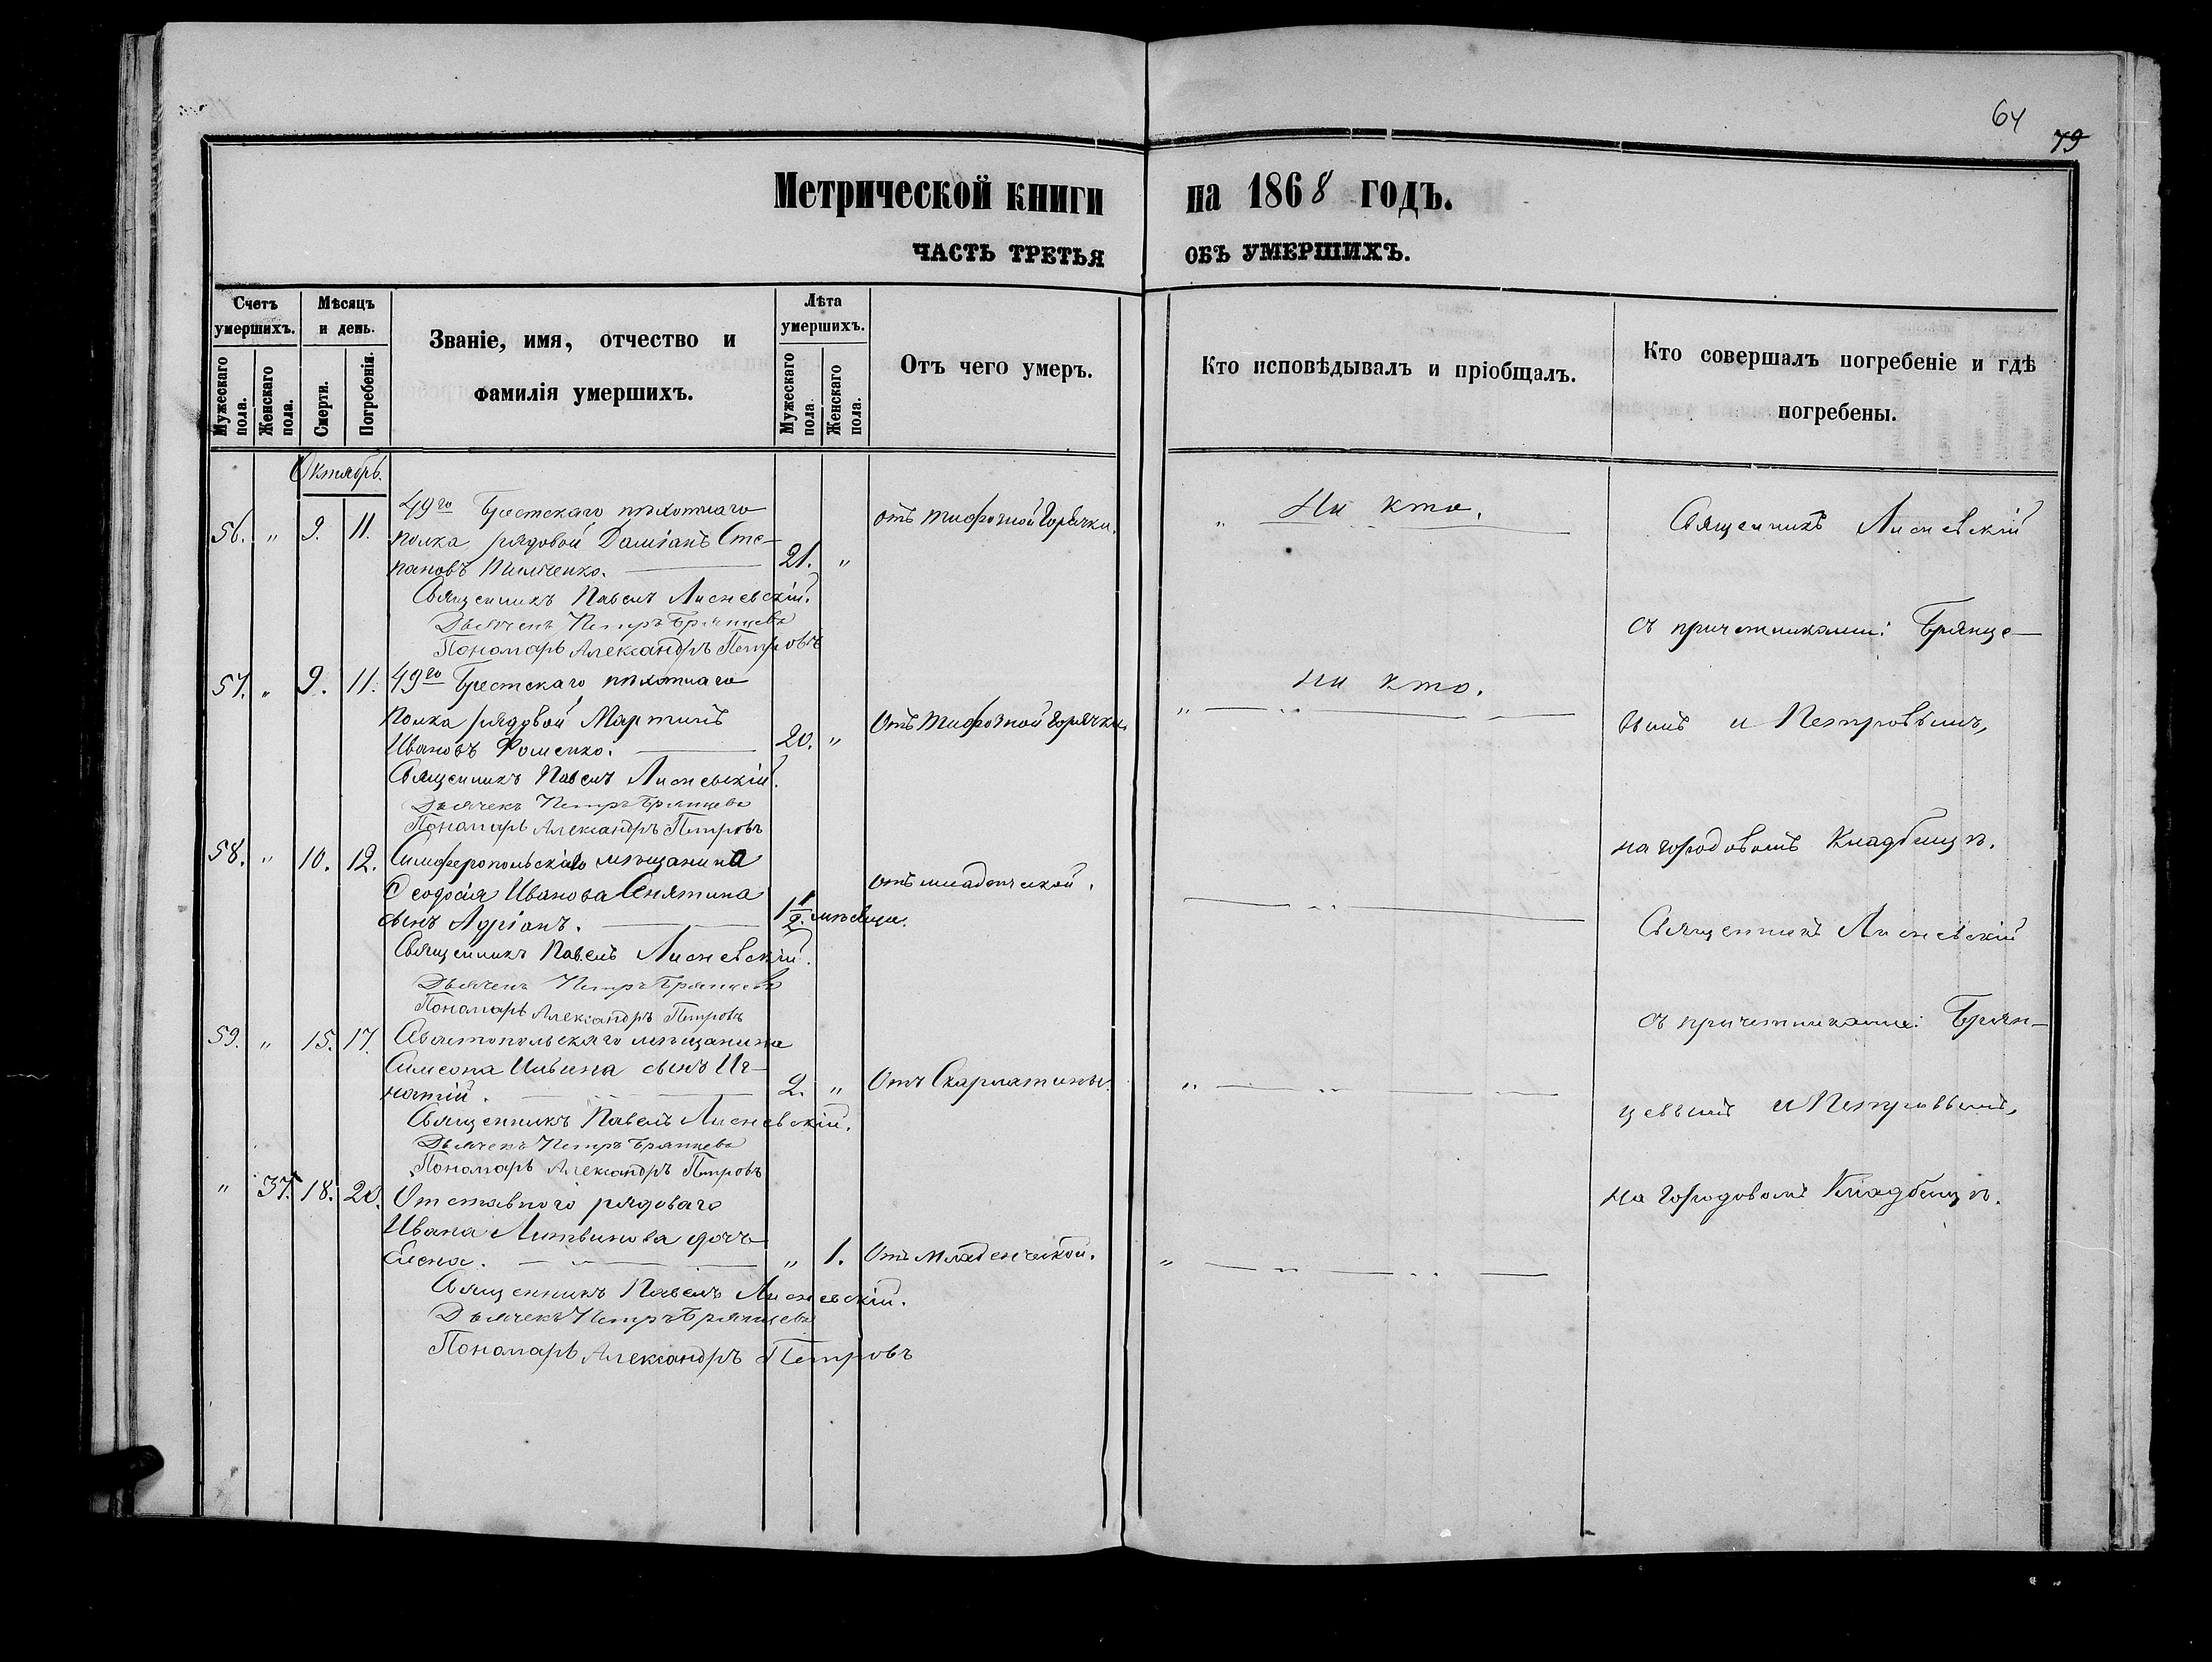 64
79
Метрической книги на 1868 годъ.
ЧАСТЬ ТРЕТЬЯ ОБЪ УМЕРШИХЪ.
Счетъ умершихъ.
Мужескаго пола.
Женскаго пола.
Мѣсяцъ и день.
Смерти.
Погребенія.
Званіе, имя, отчество и
фамилія умершихъ.
Лѣта умершихъ.
Мужескаго пола.
Женскаго пола.
Отъ чего умеръ.
Кто исповѣдывалъ и пріобщалъ.
Кто совершалъ погребеніе и гдѣ
погребены.
Октябрь.
56. " 9. 11. 49го Брестскаго пѣхотнаго
полка рядовой Даміанъ Сте-
пановъ 21. "
отъ тифозной горячки.
" Ни кто.
Священникъ Павелъ Лисневскій.
Дьячекъ Петръ Брянцевъ
Пономарь Александръ Петровъ
57. " 9. 11. 49го Брестскаго пѣхотнаго
полка рядовой Мартинъ
Ивановъ Фоменко. 20. "
Отъ тифозной горячки.
" Ни кто.
Священникъ Павелъ Лисневскій.
Дьячекъ Петръ Брянцевъ
Пономарь Александръ Петровъ
58. " 10. 12. Симферопольскаго мѣщанина
Феодосія Иванова
сынъ Адріанъ. 1 1/2. мѣсяца.
отъ младенческой.
Священникъ Павелъ Лисневскій.
Дьячекъ Петръ Брянцевъ
Пономарь Александръ Петровъ
59. " 15. 17. Севастопольскаго мѣщанина
Симеона Ильина сынъ Иг-
натій. 2. "
Отъ Скарлатины.
Священникъ Павелъ Лисневскій.
Дьячекъ Петръ Брянцевъ
Пономарь Александръ Петровъ
" 37. 18. 20. Отставного рядоваго
Ивана Литвинова дочь
Елена. " 1. Отъ Младенческой.
Священникъ Павелъ Лисневскій.
Дьячекъ Петръ Брянцевъ
Пономарь Александръ Петровъ
Священникъ Лисневскій
съ причетниками: Брянце-
вымъ и Петровымъ,
на городовомъ Кладбищѣ.
Священникъ Лисневскій
съ причетниками: Брян-
цевымъ и Петровымъ,
на Городовомъ Кладбищѣ.